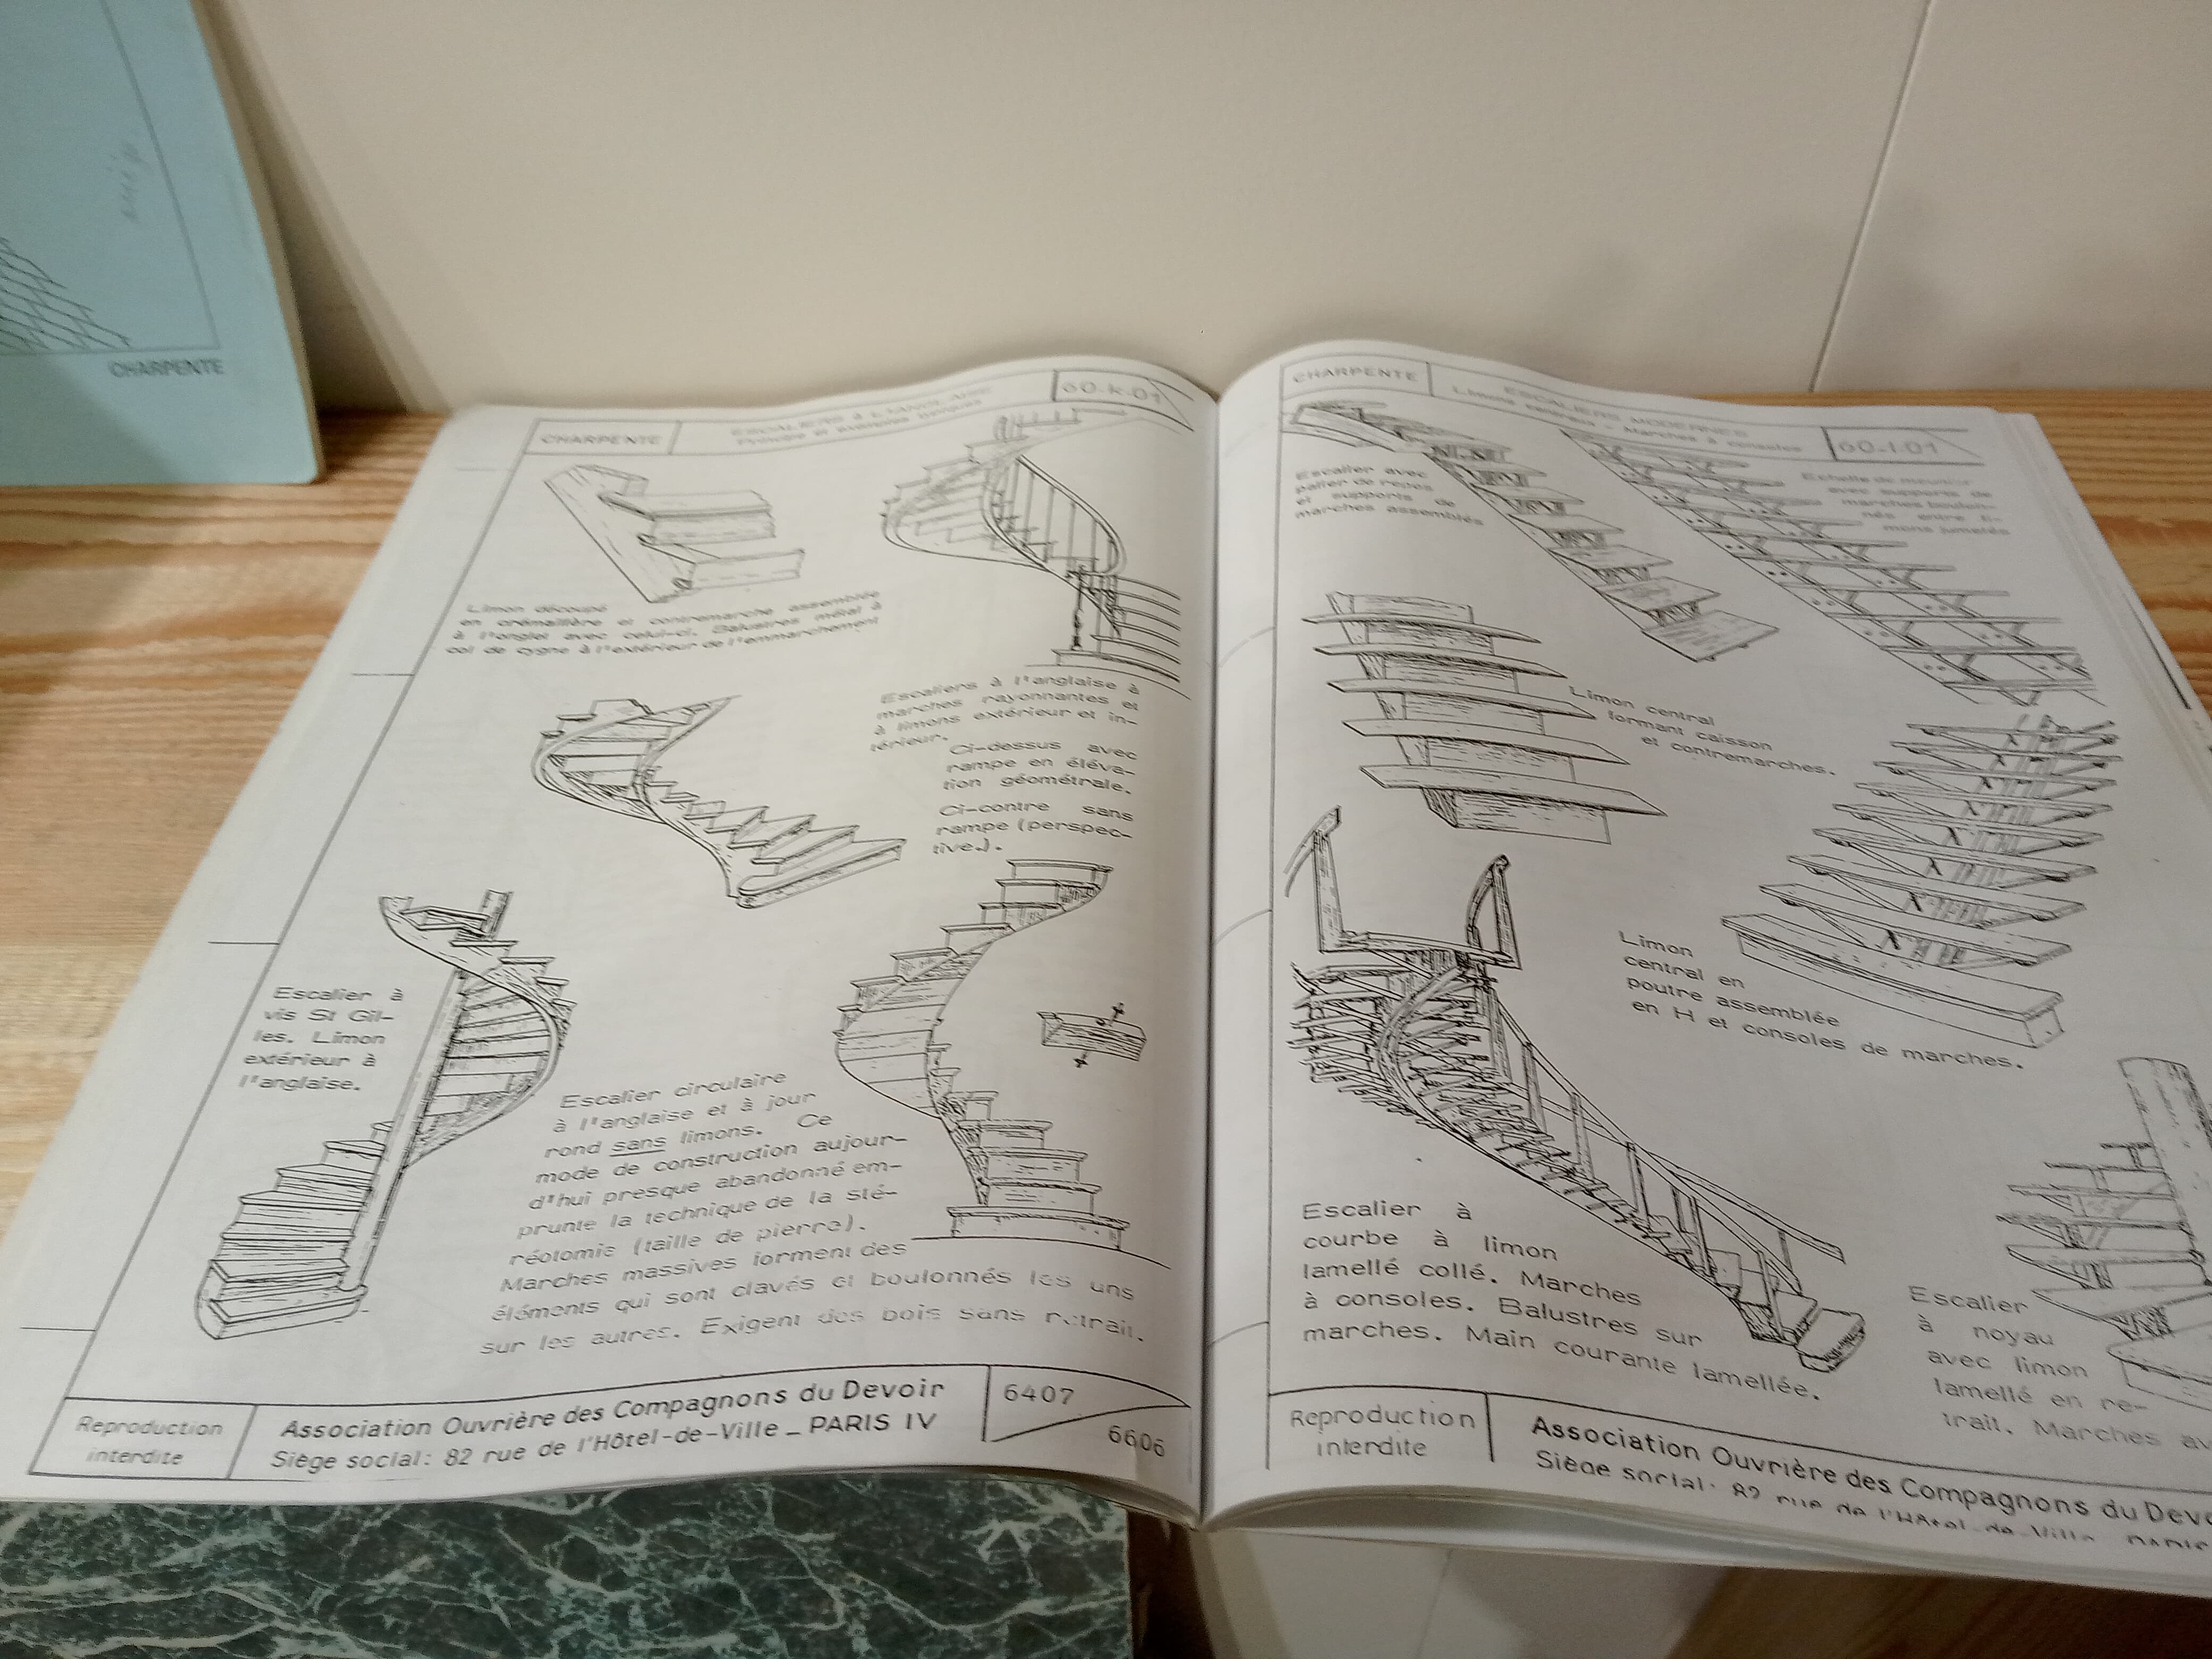 CHARPENTE
CHARPENTE
ESCALIERS à L'ANGLAISE
60-k-01
Limon découpé
en crémaillère et contremarche assemblée
à l'onglet avec celui-ci. Balustres métal à
col de cygne à l'extérieur de l'emmarchement
Escaliers à l'anglaise à
marches rayonnantes et
à limons extérieur et in-
térieur.
Ci-dessus avec
rampe en éléva-
tion géométrale.
Ci-contre sans
rampe (perspec-
tive.).
Escalier à
vis St Gil-
les. Limon
extérieur à
l'anglaise.
Escalier circulaire
à l'anglaise et à jour
rond sans limons. Ce
mode de construction aujour-
d'hui presque abandonné em-
prunte la technique de la sté-
réotomie (taille de pierre).
Marches massives forment des
éléments qui sont clavés et boulonnés les uns
sur les autres. Exigent des bois sans retrait.
Reproduction
interdite
Association Ouvrière des Compagnons du Devoir
Siège social: 82 rue de l'Hôtel-de-Ville _ PARIS IV
6407
6606
CHARPENTE
ESCALIERS MODERNES
Limons centraux - Marches à consoles
60-l-01
Escalier avec
palier de repos
et supports de
marches assemblés
Echelle de meunier
avec supports de
marches boulon-
nés entre li-
mons jumelés
Limon central
formant caisson
et contremarches.
Limon
central en
poutre assemblée
en H et consoles de marches.
Escalier à
courbe à limon
lamellé collé. Marches
à consoles. Balustres sur
marches. Main courante lamellée.
Escalier
à noyau
avec limon
lamellé en re-
trait. Marches av
Reproduction
interdite
Association Ouvrière des Compagnons du Devo
Siège social: 82 rue de l'Hôtel-de-Ville